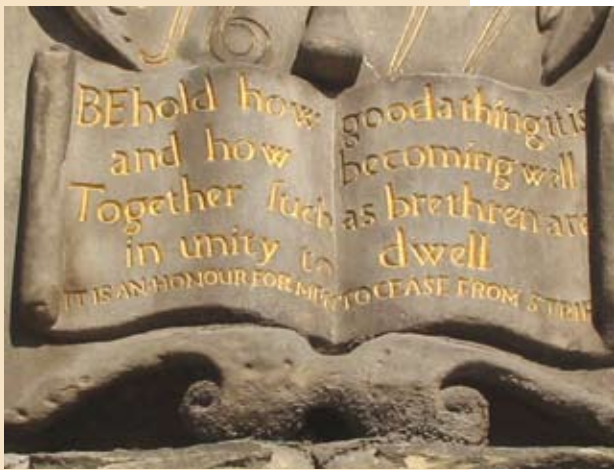 16 77
BEhold how good a thing it is
and how becoming well
Together ſuch as brethren are
in unity to dwell
IT IS AN HONOUR FOR MEN TO CEASE FROM STRIF